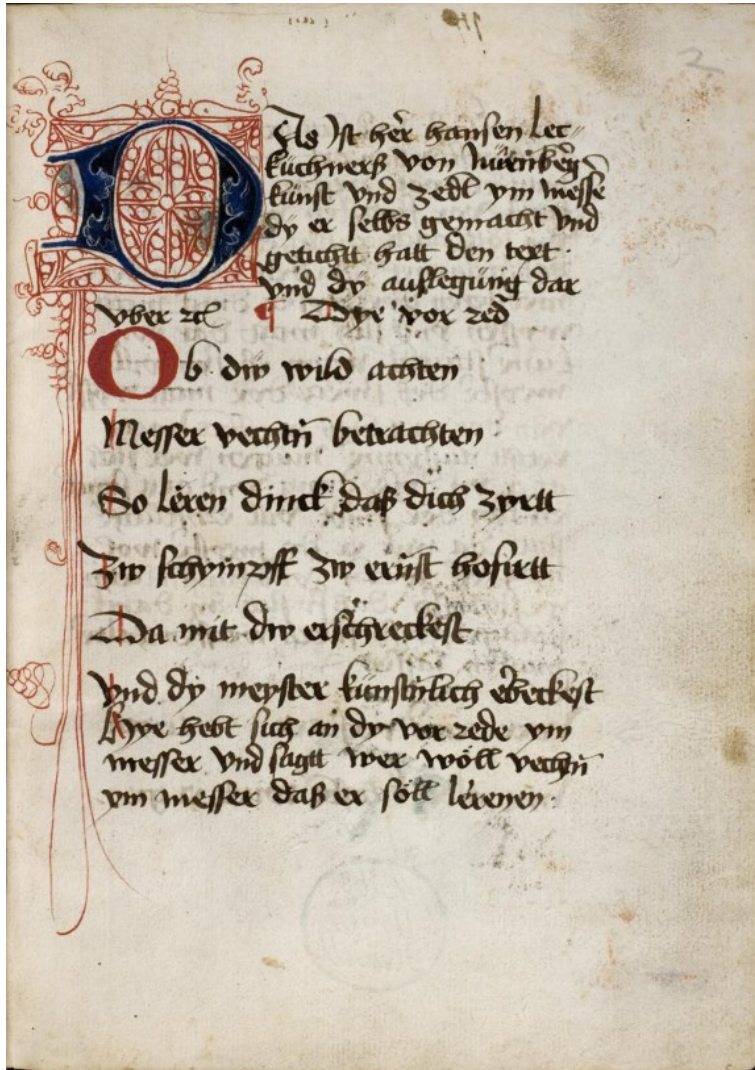 2
Das Ist her̀ hansen Lec-
küchnerß von Nürenbe͛g
künst vnd zedl ym messe
dy er selbs gemacht vnd
geticht hatt den text
vnd dÿ auslegüng dar
vber ⁊c̃ ¶ Dye vor red
Ob dẅ wild achten
Messer vechtn̄ betrachten
So leren dinck daß dich zyrtt
Zw schympff zw ernst hofirtt
Da mit dw erschreckest
vnd dy meyster künstnlich erbeckest
Hye hebt sich an dy vor rede ym
messer vnd sagtt wer wöll vechtn̄
ym messer daß er söll lerenen